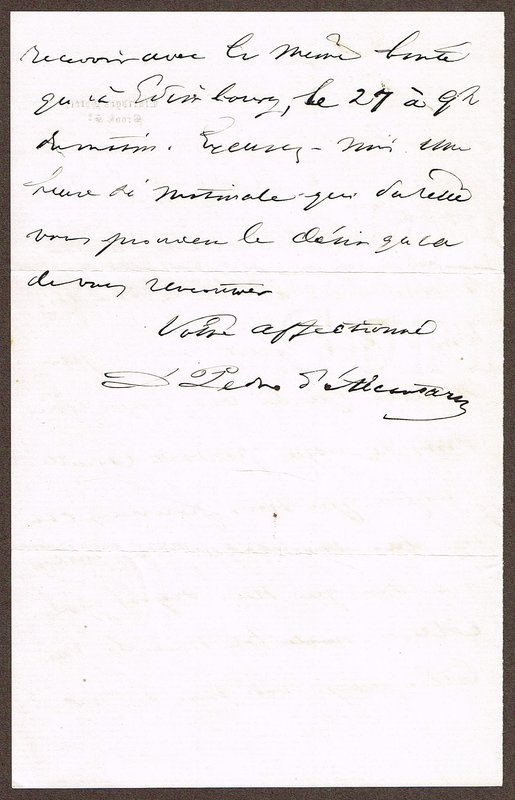 recevoir avec la même bonté
qu'à Edimbourg, le 27 à 9h
du matin. Excusez-moi une
heure si matinale qui du reste
vous prouvera le désir que j'ai
de vous retrouver
Votre affectionné
D. Pedro d'Alcantara